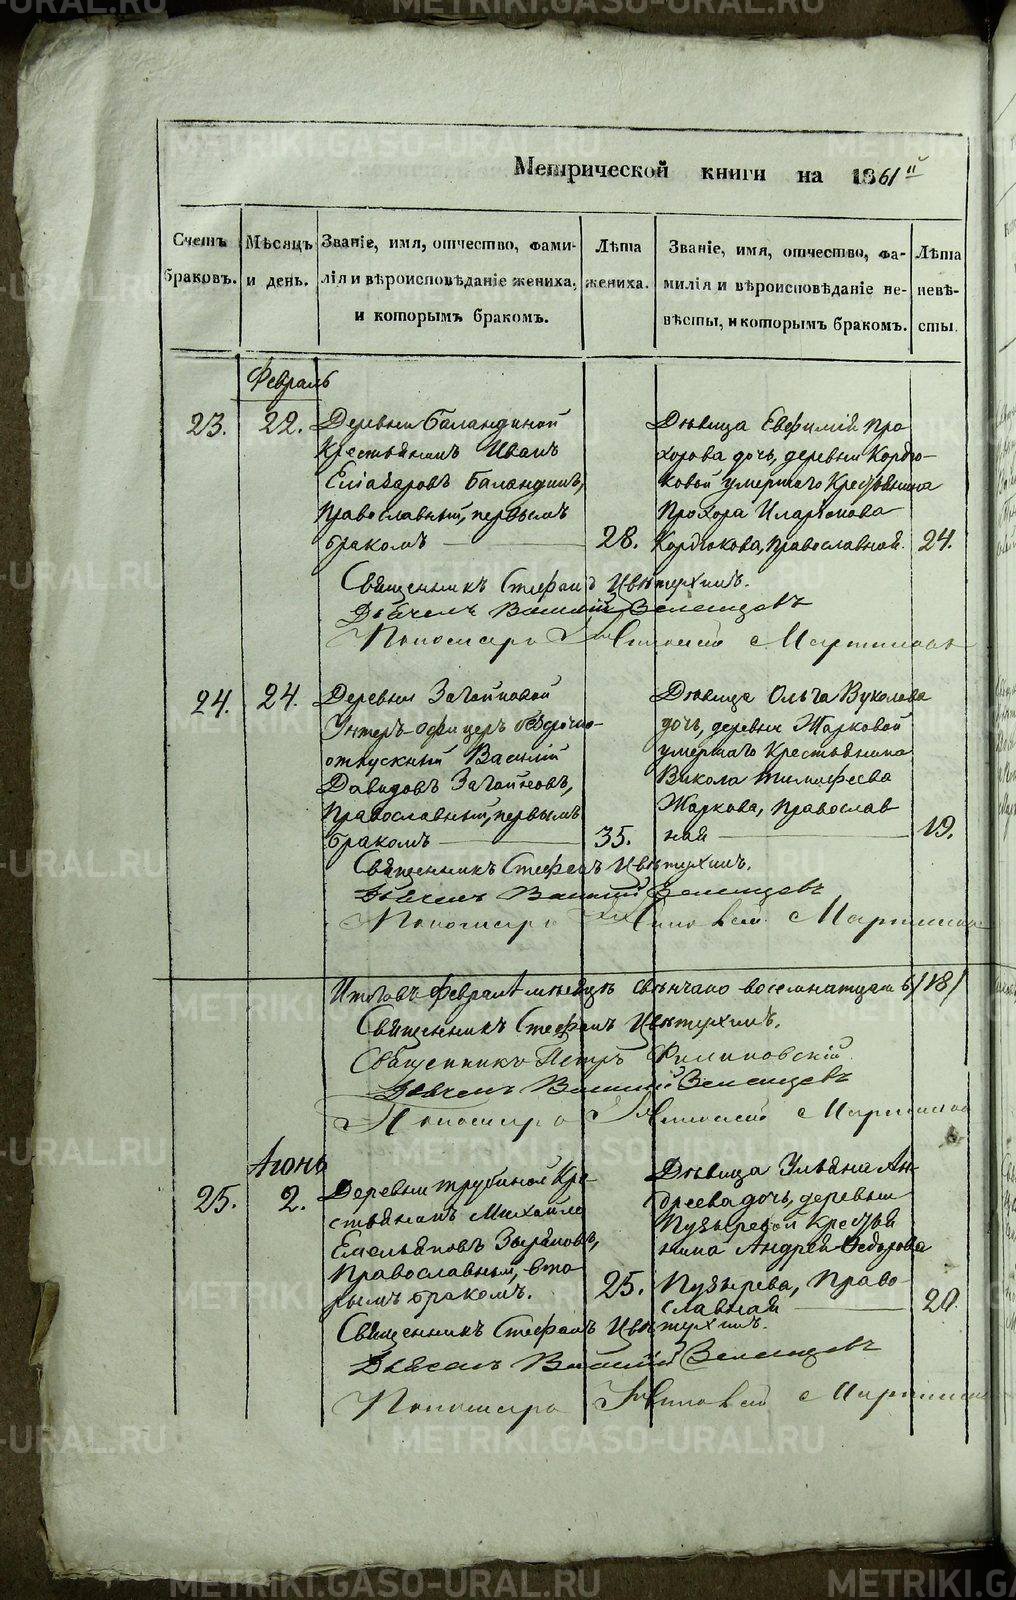 METRIKI.GASO-URAL.RU
Метрической книги на 1861й
Счетъ браковъ.
Мѣсяцъ и день.
Званіе, имя, отчество, фами-
лія и вѣроисповѣданіе жениха,
и которымъ бракомъ.
Лѣта
жениха.
Званіе, имя, отчество, фа-
милія и вѣроисповѣданіе не-
вѣсты, и которымъ бракомъ.
Лѣта
невѣ-
сты.
Февраль
23.
22.
Деревни Баландиной
Крестьянинъ Иванъ
Баландинъ,
Православный, первымъ
бракомъ
28.
Дѣвица Евфимія Про
хорова дочь, деревни Кордю-
ковой умершаго Крестьянина
Прохора Иларіонова
Кордюкова, православной.
24.
Священникъ Стефанъ Цвѣтухинъ.
Дьячекъ Василій Зеленцовъ
Пономарь Мартиновъ
24.
24.
Деревни Загайновой
Унтеръ-офицеръ безсрочно-
отпускный Василій
Давидовъ Загайновъ,
Православный, первымъ
бракомъ
35.
Дѣвица Ольга Вуколова
дочь, деревни Жарковой
умершаго Крестьянина
Викола Тимофеева
Жаркова, православ
ная
19.
Священникъ Стефанъ Цвѣтухинъ.
Дьячекъ Василій Зеленцовъ
Пономарь Мартиновъ
Итого въ Февралѣ мѣсяцѣ свѣнчано восемнатцать б/18/
Священникъ Стефанъ Цвѣтухинъ.
Священникъ Петръ Филиповскій
Дьячекъ Василій Зеленцовъ
Пономарь Мартиновъ
Іюнь
25.
2.
Деревни Трубиной Кре-
стьянинъ Михайло
Емельяновъ Зыряновъ,
Православный, вто-
рымъ бракомъ.
25.
Дѣвица Ульяна Ан-
дреева дочь, деревни
Пузыревой Крестья
нина Андрея Ѳедорова
Пузырева, Право-
славная
20.
Священникъ Стефанъ Цвѣтухинъ.
Дьячекъ Василій Зеленцовъ
Пономарь Мартиновъ